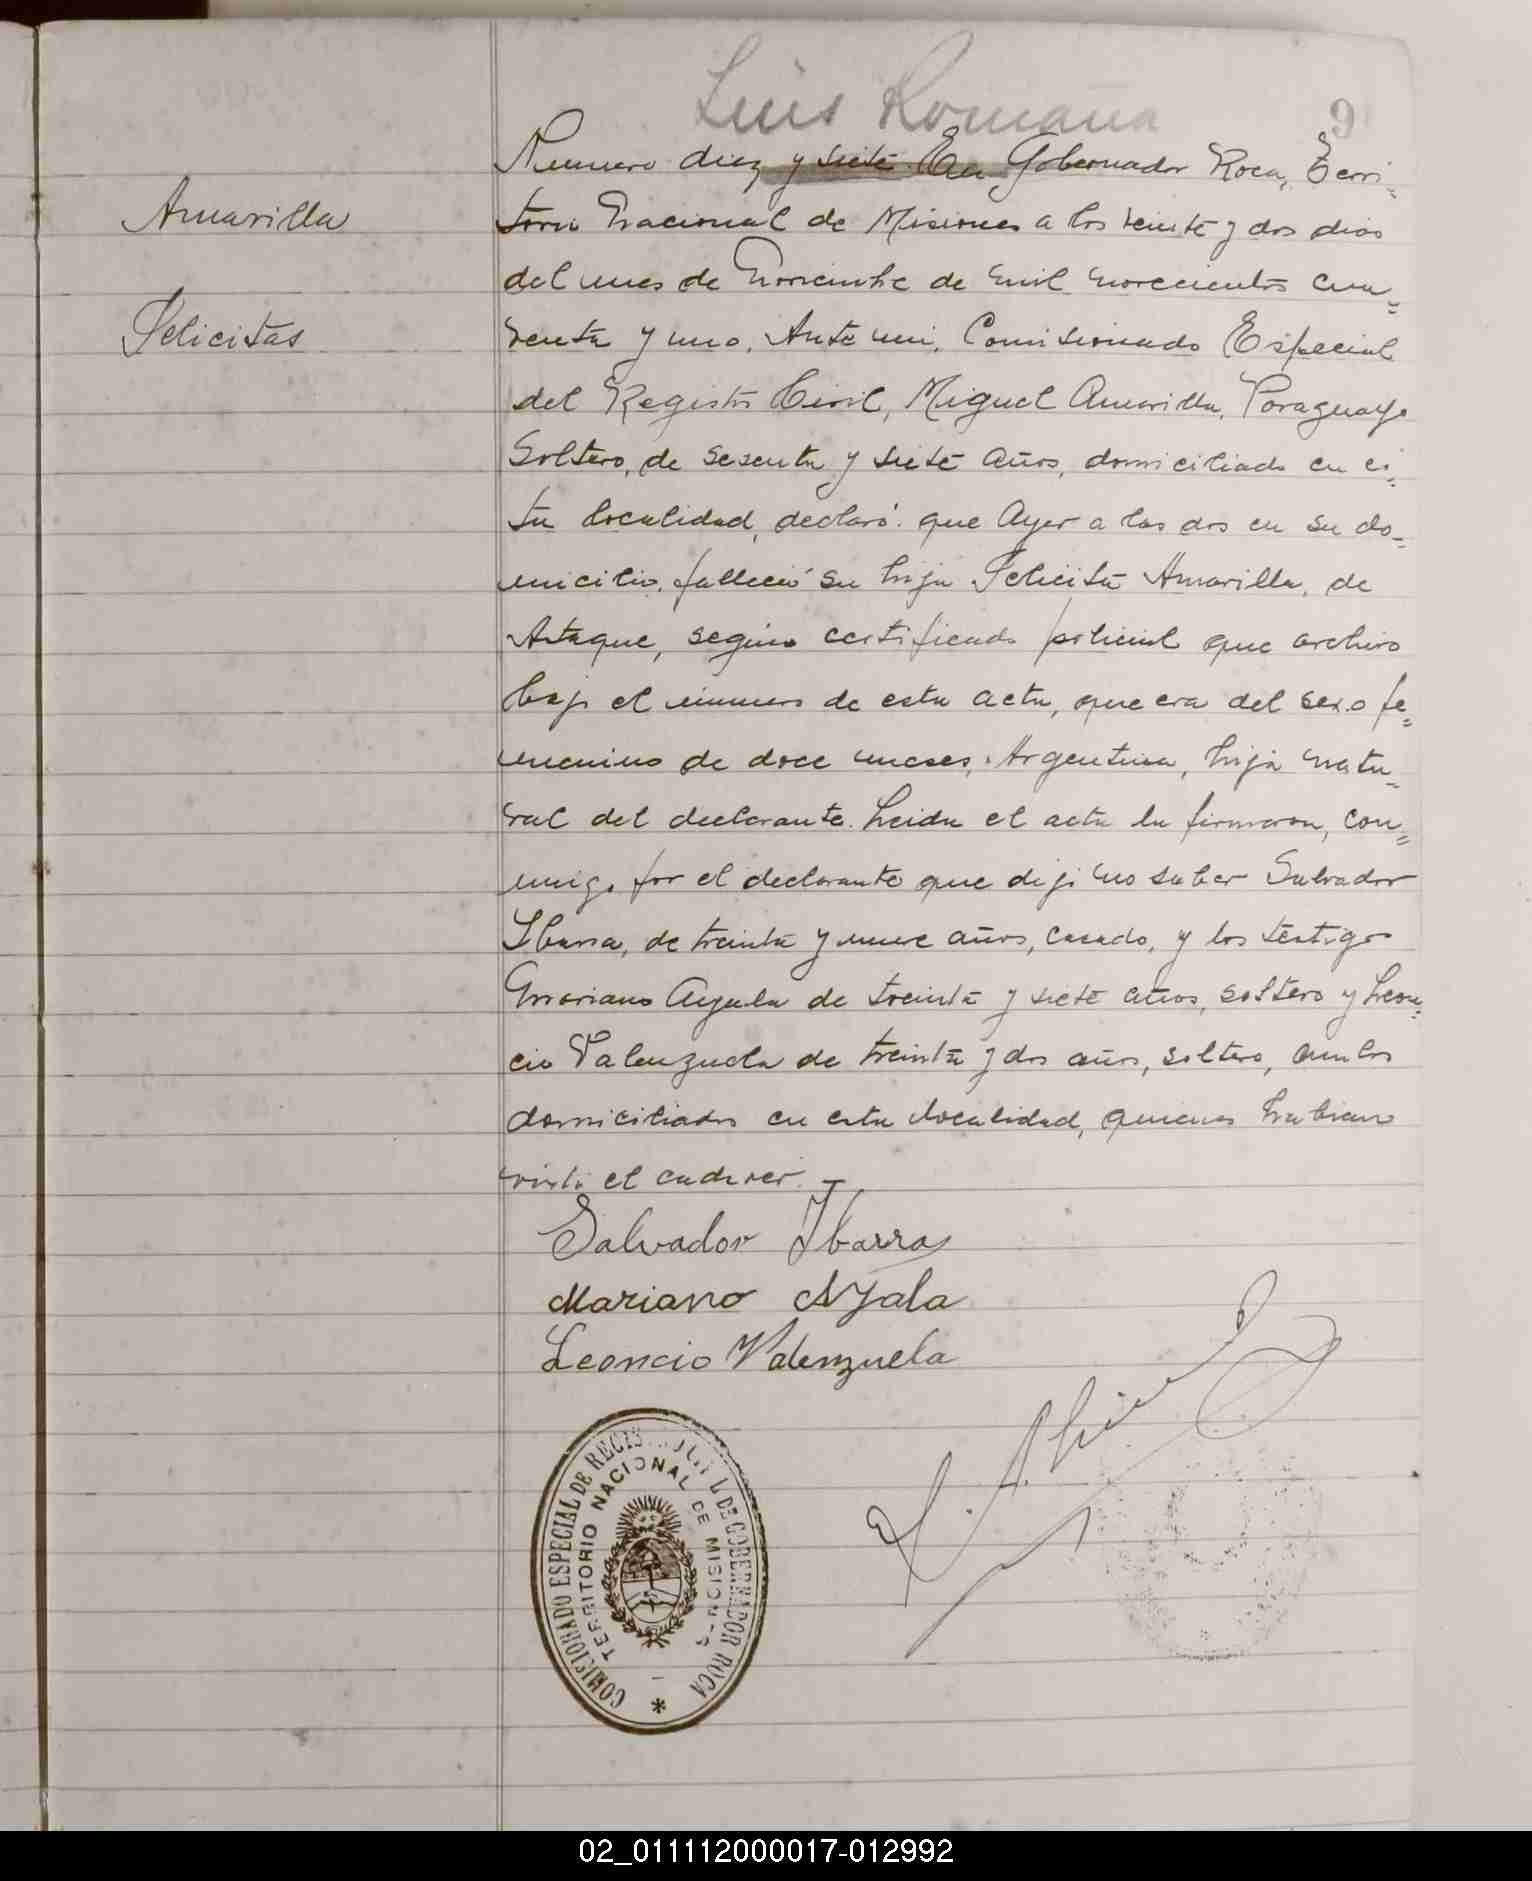 Luis Romaña
9
Numero diez y siete. En Gobernador Roca, Terri-
Amarilla
torio Nacional de Misiones a los veinte y dos dias
del mes de Noviembre de mil novecientos cua-
Felicitas
renta y uno. Ante mi, Comisionado Especial
del Registro Civil, Miguel Amarilla, Paraguayo
Soltero, de sesenta y siete años, domiciliado en es-
ta localidad, declaró: que Ayer a las dos en su do-
micilio, falleció su hija Felicita Amarilla, de
Ataque, según certificado policial que archivo
bajo el número de esta acta, que era del sexo fe-
menino de doce meses, Argentina, hija natu-
ral del declarante. Leida el acta la firmaron, con-
migo por el declarante que dijo no saber Salvador
Ibarra, de treinta y nueve años, casado, y los testigos
Mariano Ayala de treinta y siete años, soltero y Leon-
cio Valenzuela de treinta y dos años, soltero, ambos
domiciliados en esta localidad, quienes habian
visto el cadaver.
Salvador Ibarra
Mariano Ayala
Leoncio Valenzuela
COMISIONADO ESPECIAL DE REGIS DE GOBERNADOR ROCA
TERRITORIO NACIONAL DE MISIONES
02_011112000017-012992